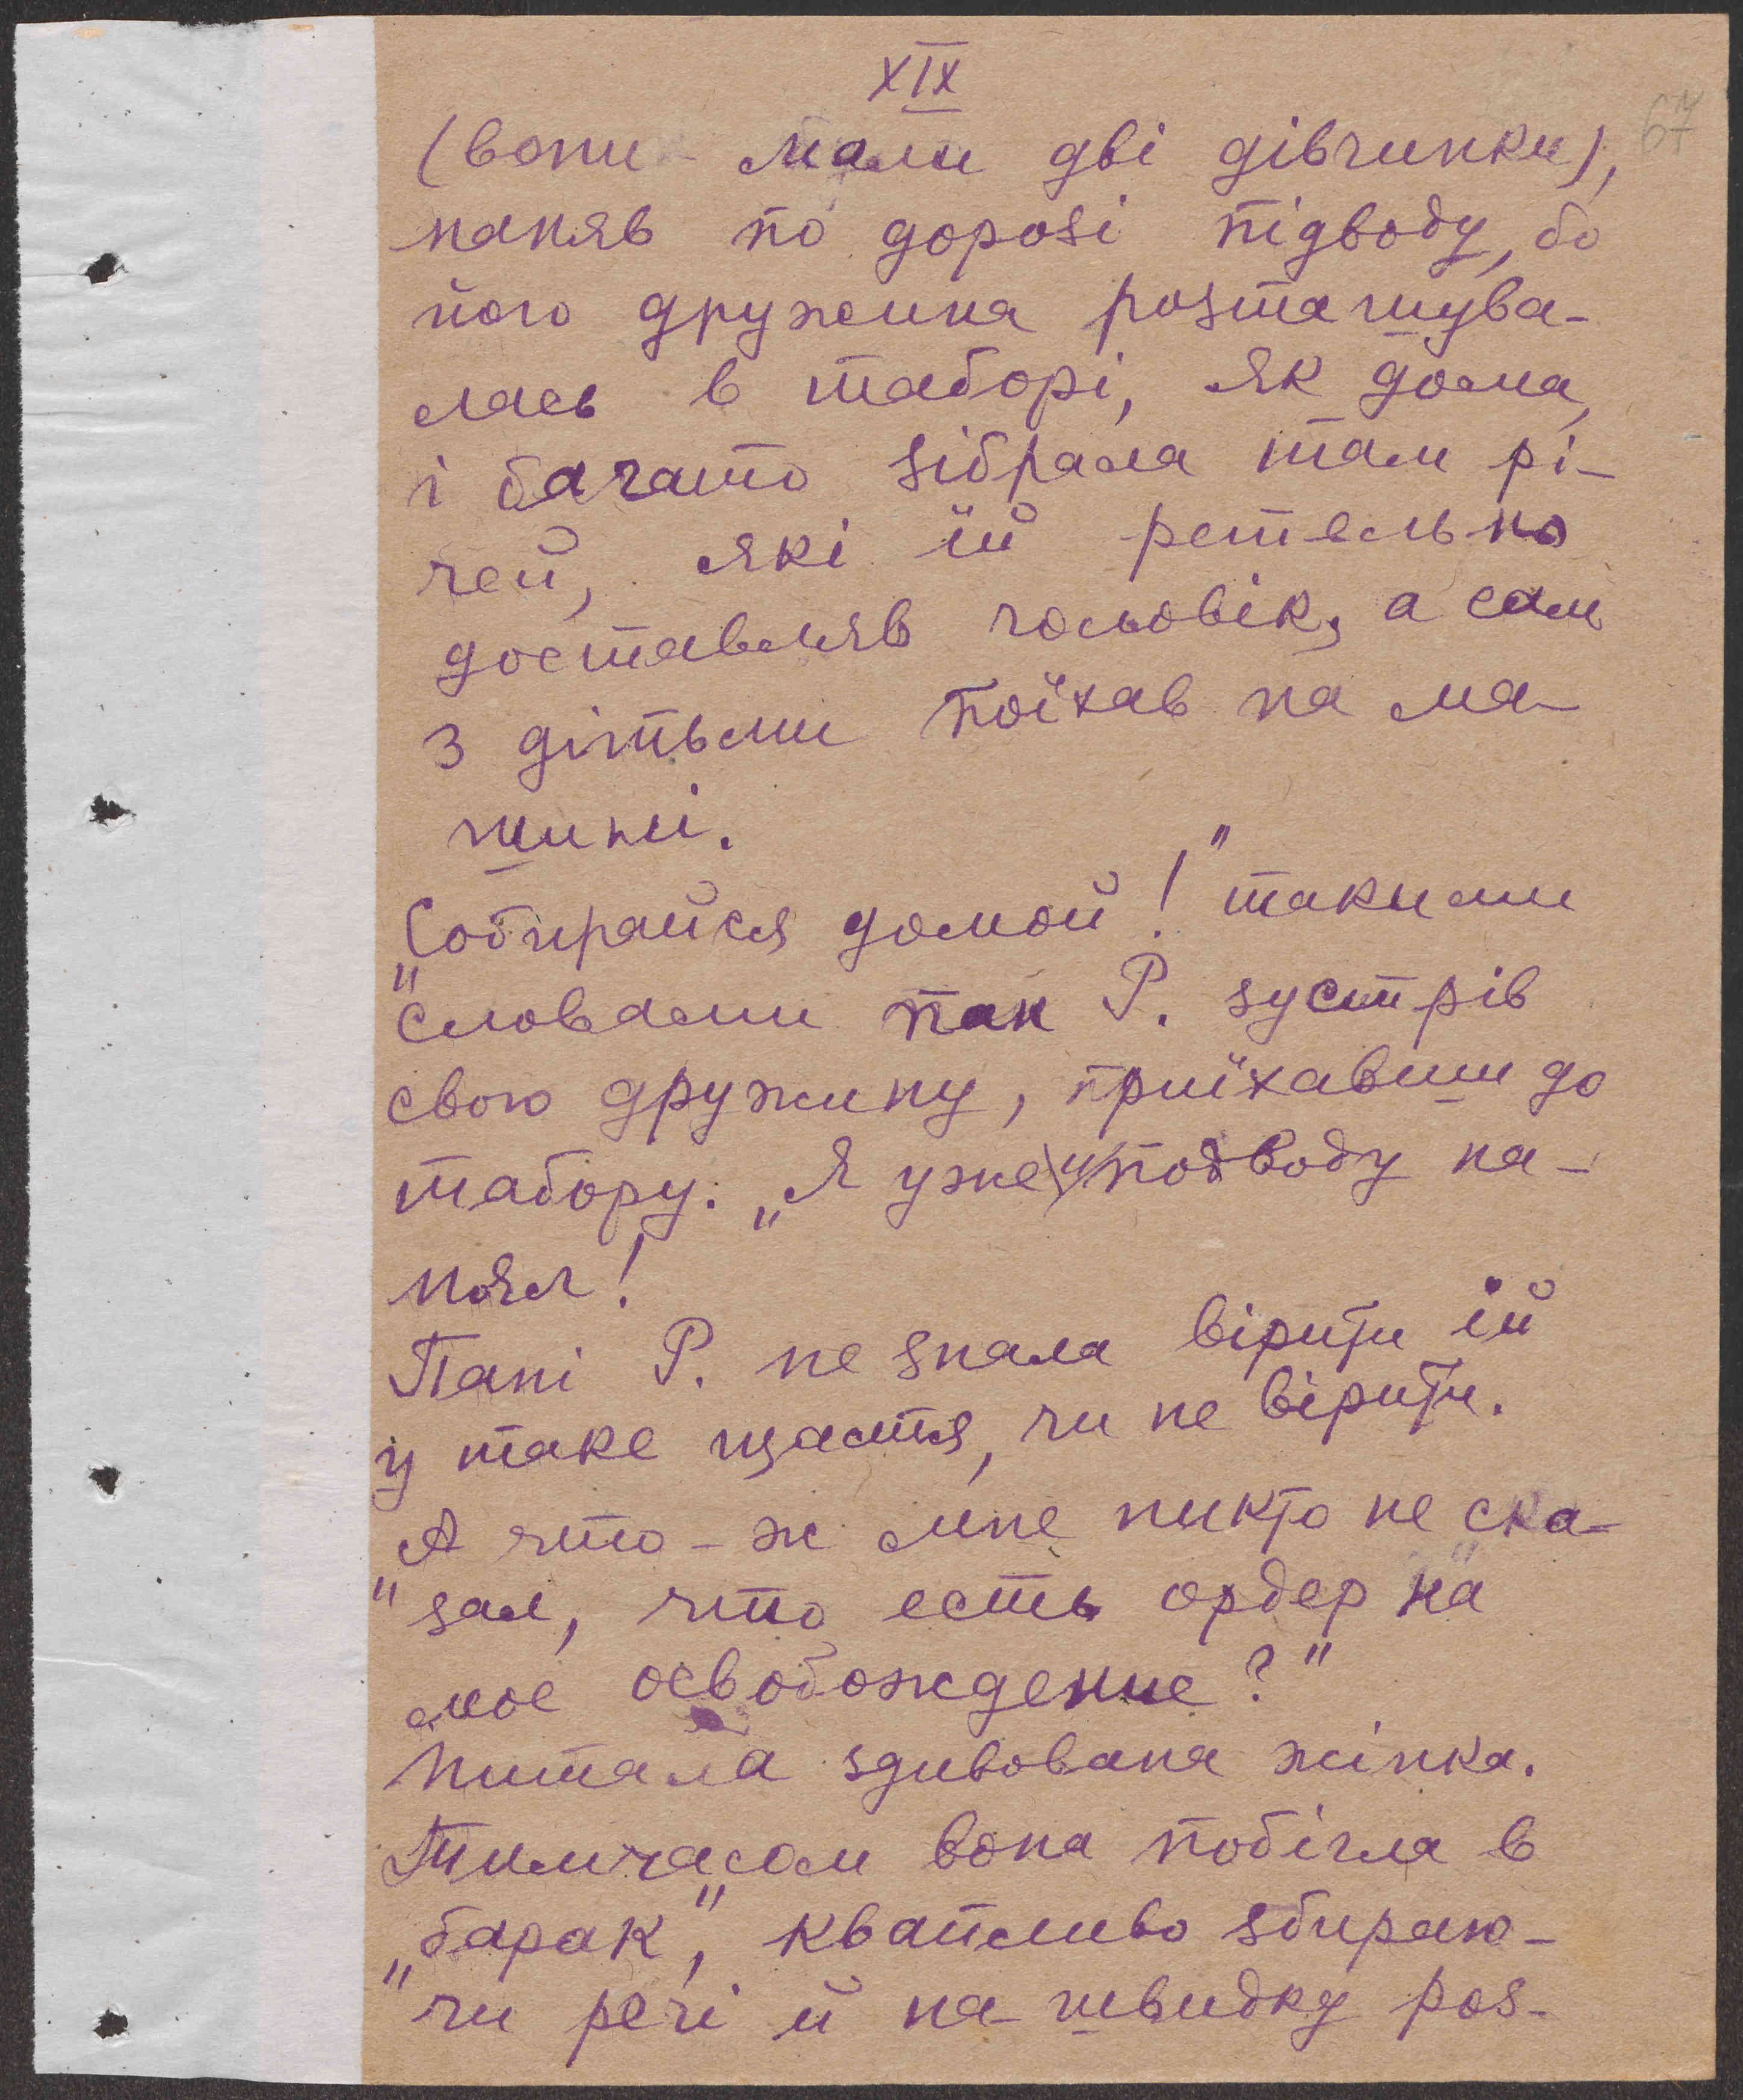 XIX
67
(вони мали дві дівчинки),
наняв по дорозі підводу, бо
його дружина розташува-
лась в таборі, як дома,
і багато зібрала там рі-
чей, які їй ретельно
доставляв чоловік, а сам
з дітьми поїхав на ма-
шині.
„Собирайся домой!" такими
словами пан Р. зустрів
свою дружину, приїхавши до
табору. „Я уже и подводу на-
нял!
Пані Р. не знала вірити їй
у таке щастя, чи не вірити.
„А что-ж мне никто не ска-
зал, что есть ордер на
мое освобождение?"
питала здивована жінка.
Тимчасом вона побігла в
„барак", квапливо збираю-
чи речі й на-швидку роз-